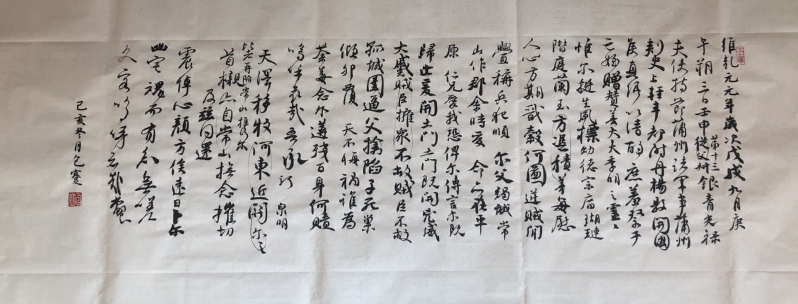 维乾元元年歲次戊戌九月庚
午朔三日壬申第十三從父銀青光祿
夫使持節蒲州諸軍事蒲州
刺史上輕車都尉丹楊縣開國
侯真卿以清酌庶羞祭于
亡姪贈贊善大夫季明之靈
惟尔挺生夙標幼德宗廟瑚璉
階庭蘭玉方憑積善每慰
人心方期戩穀何圖逆賊開
釁稱兵犯順尔父竭誠常
山作郡余時受命亦在平
原仁兄愛我恐俾尔傳言尔既
歸止爰開土門土門既開兇威
大蹙賊臣擁衆不救賊臣不救
孤城圍逼父擒陷子死巢
傾卵覆天不悔禍誰為
荼毒念尔遘殘百身何贖
嗚呼哀哉吾承 泉明
天澤移牧河東近關尔之
比者再陷常山携尔
首櫬亦自常山撫念摧切
及茲同還
震悼心顏方俟遠日卜尔
幽宅魂而有知無嗟
久客嗚呼哀哉尚饗
己亥冬月